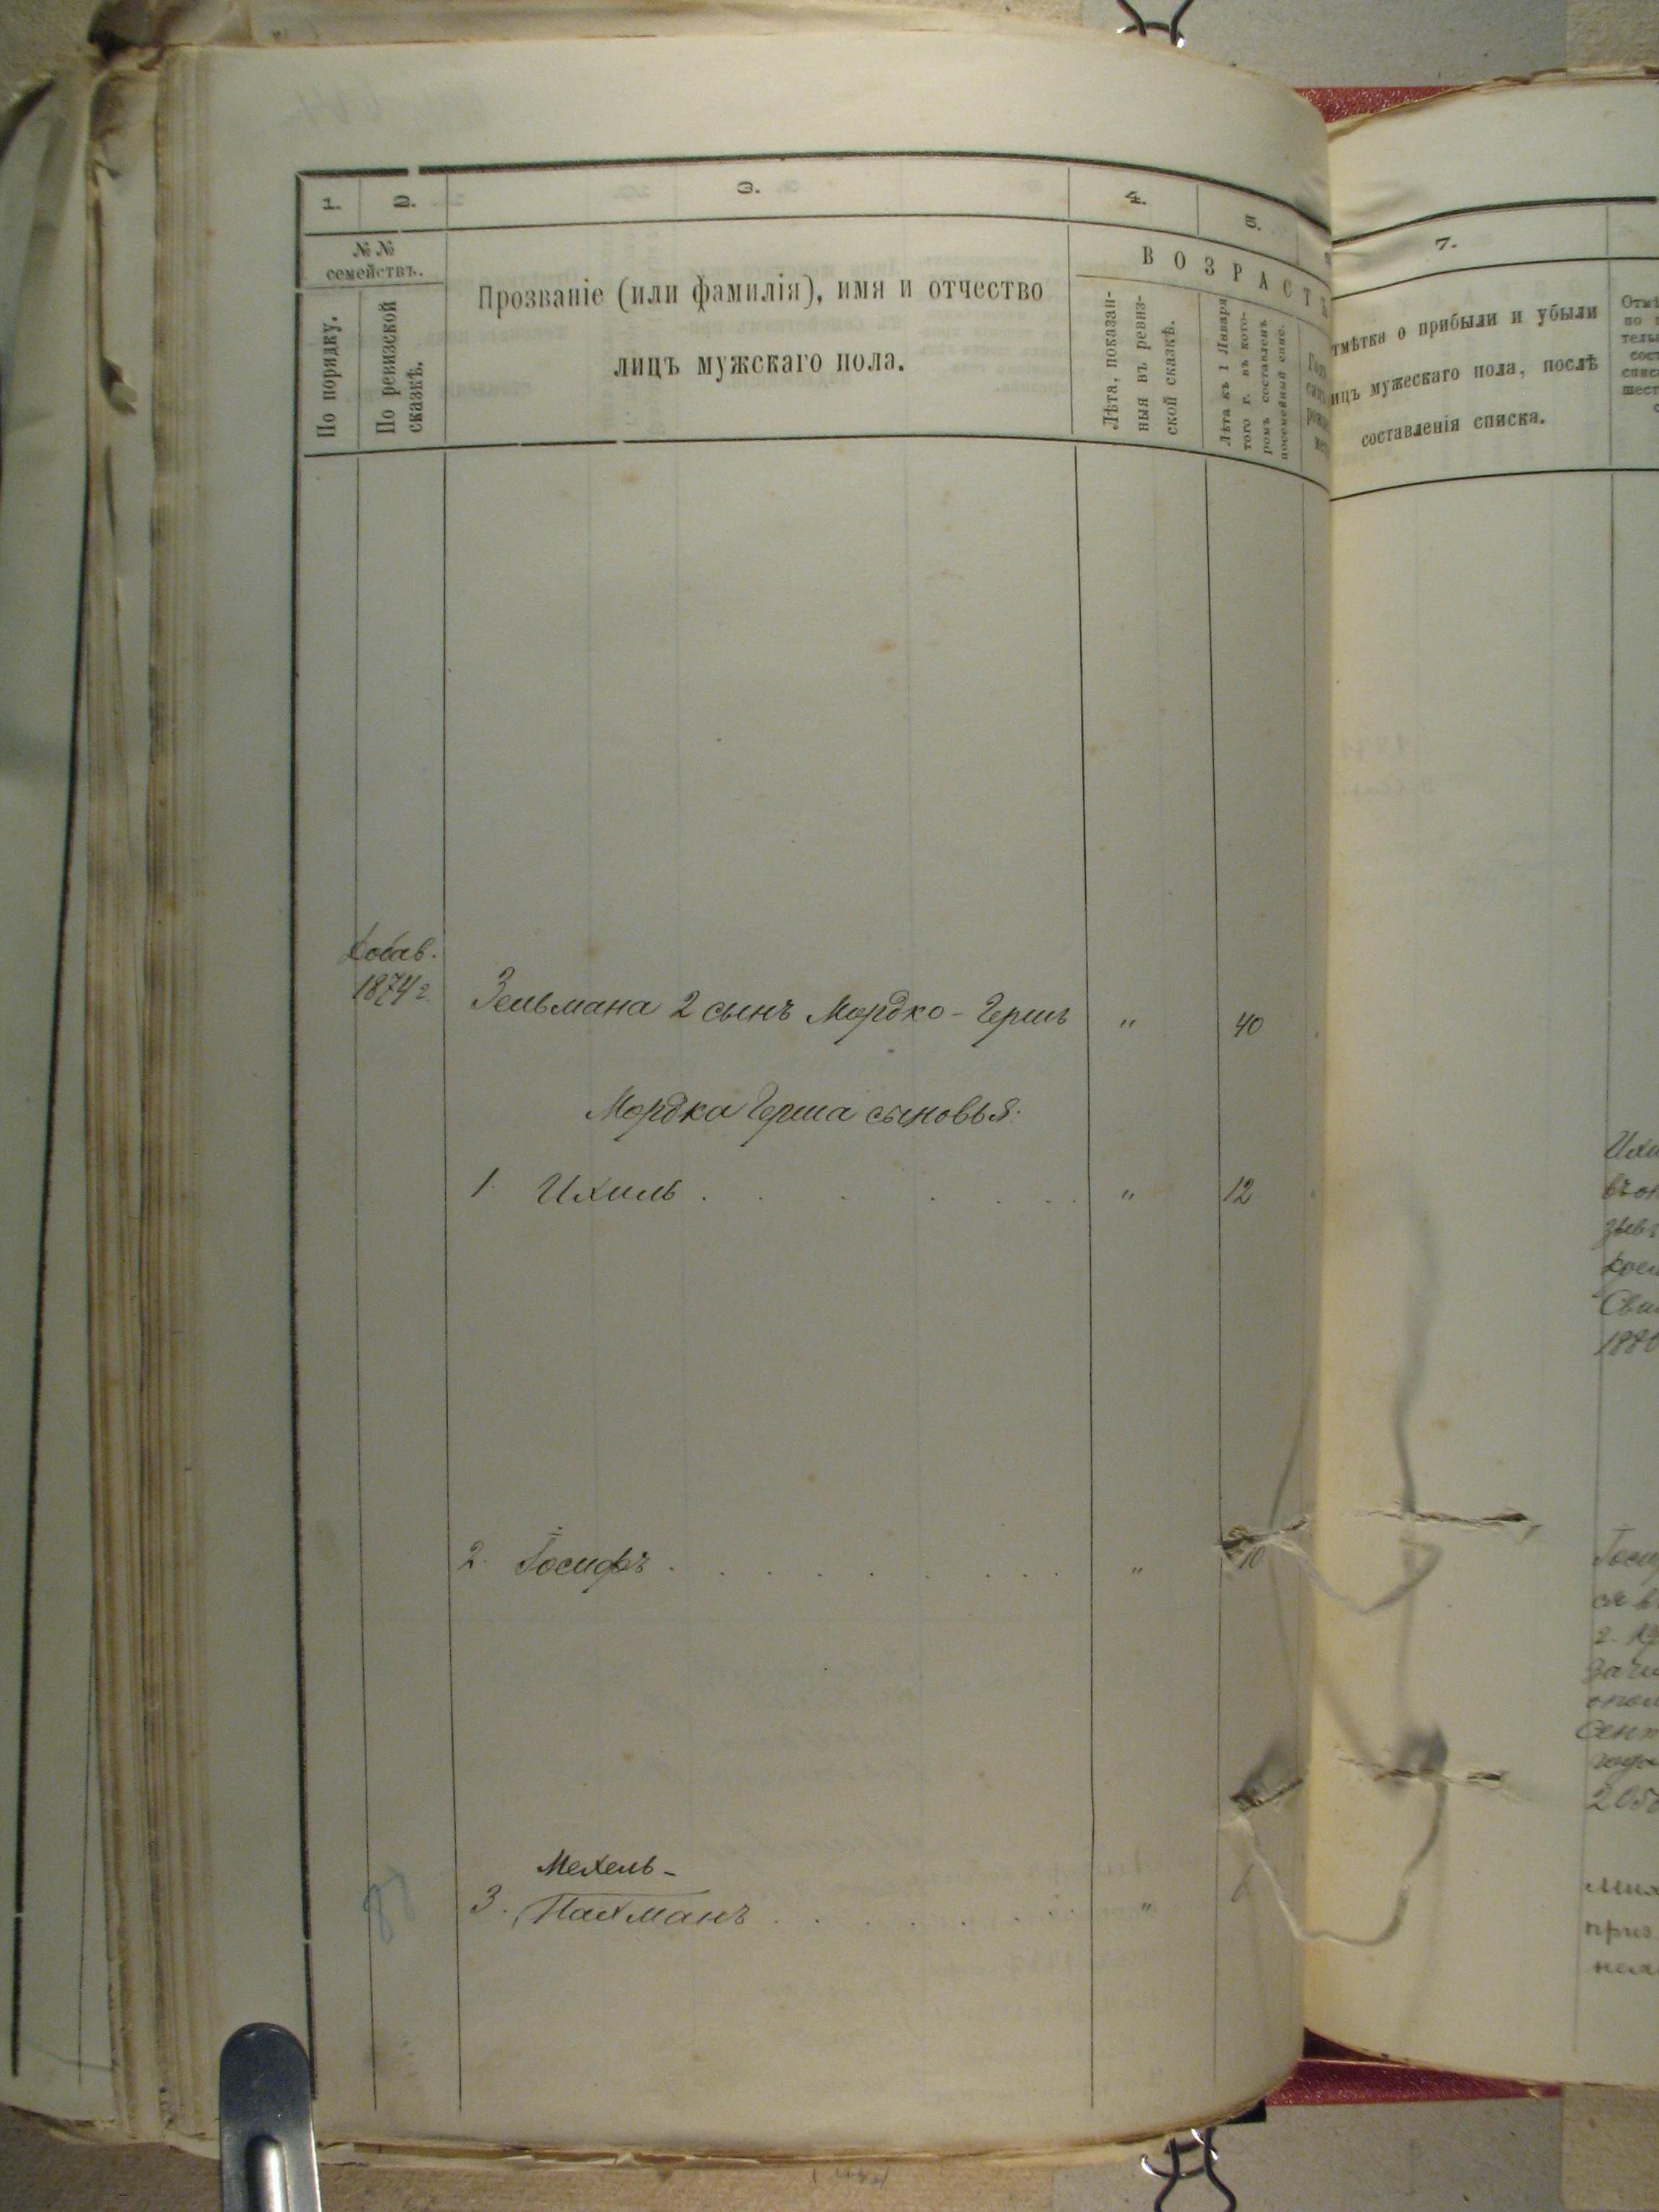 1. 2. 3. 4. 5.
№ № семействъ.
По порядку.
По ревизской сказкѣ.
Прозваніе (или фамилія), имя и отчество
лицъ мужскаго пола.
ВОЗРАСТЪ
Лѣта, показан-
ныя въ ревиз-
ской сказкѣ.
Лѣта къ 1 Января
того г. въ кото-
ромъ составленъ
посемейный спис.
7.
тмѣтка о прибыли и убыли
ицъ мужескаго пола, послѣ
составленія списка.
1874 г.
Зельмана 2 сынъ Мордко-Гершъ " 40
Мордка Герша сыновья:
1. Ихиль . . . . . . " 12
2. Іосифъ . . . . . . . . " 10
Мехель-
3. Нахманъ . . . . . . . "